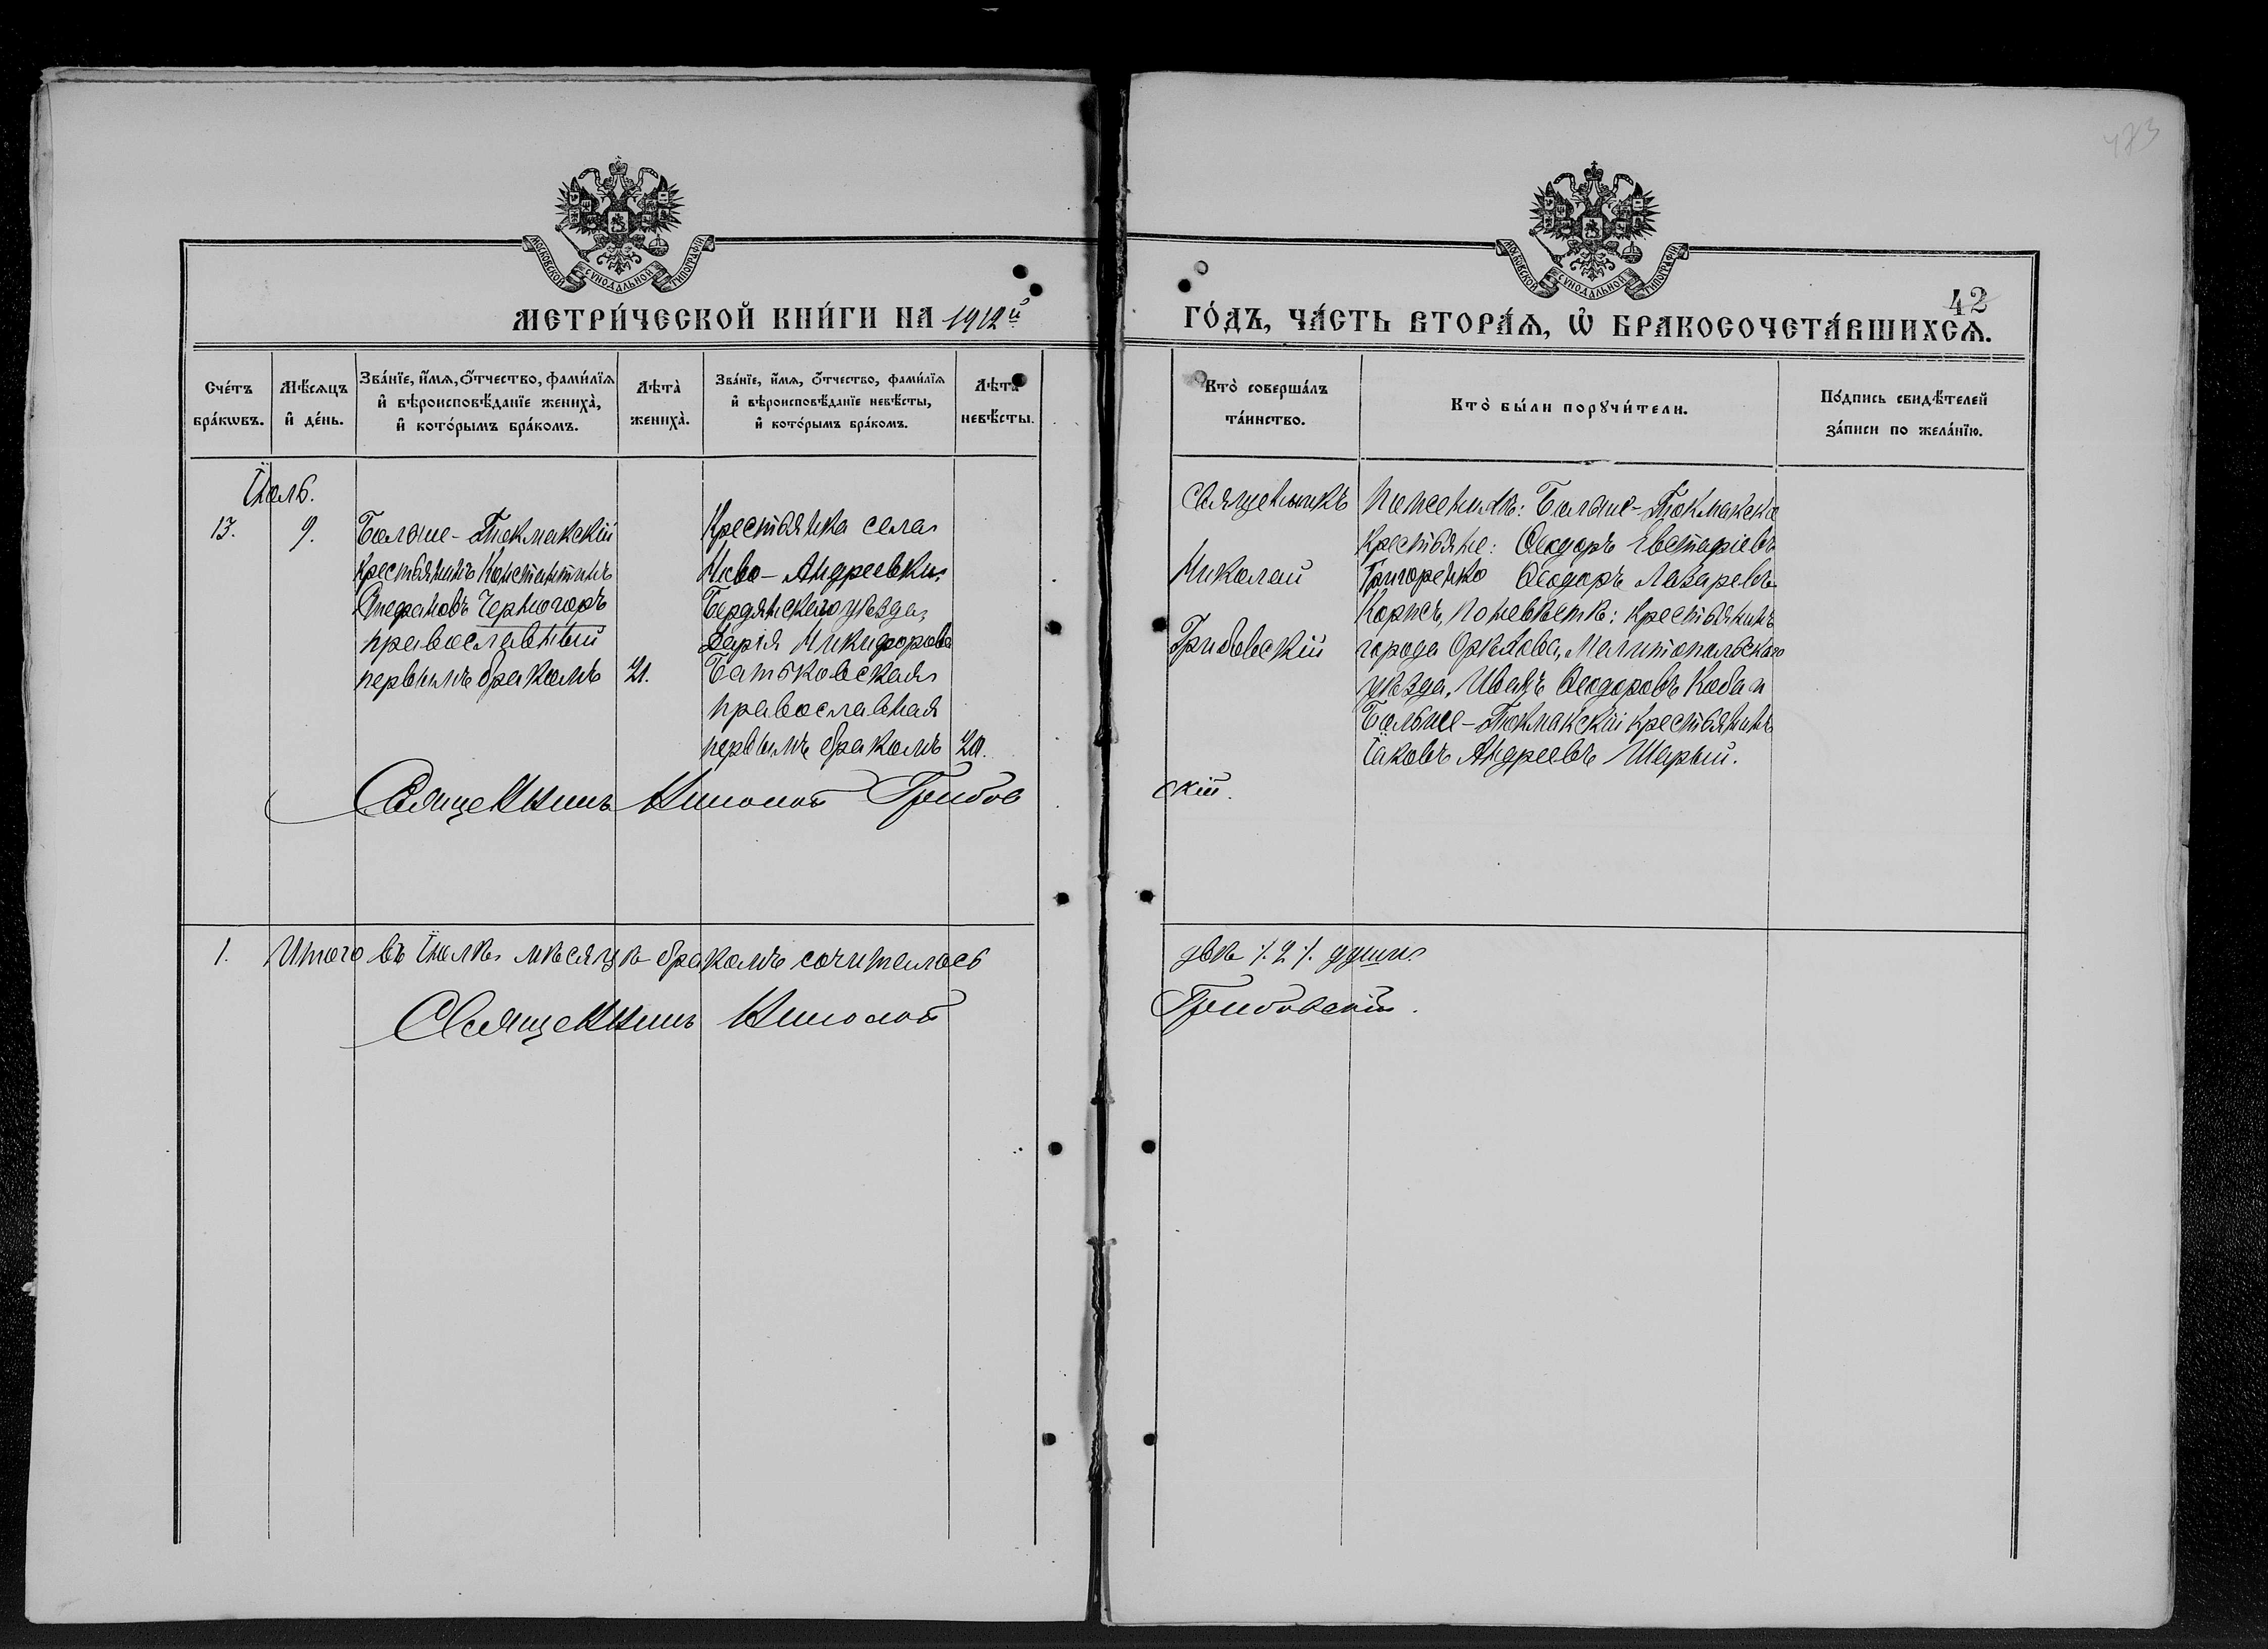 483
МОСКОВСКОЙ СУНОДАЛЬНОЙ ТИПОГРАФІИ
МОСКОВСКОЙ СУНОДАЛЬНОЙ ТИПОГРАФІИ
42
МЕТРИ́ЧЕСКОЙ КНИ́ГИ НА 1912й
ГО́ДЪ, ЧА́СТЬ ВТОРА́Ѧ, Ѽ БРАКОСОЧЕТА́ВШИХСѦ.
Сче́тъ бра́кѡвъ.
Мѣ́сѧцъ и҆ де́нь.
Зва́нїе, и҆́мѧ, ѻ҆́тчество, фами́лїѧ и҆ вѣроисповѣ́данїе жениха̀, и҆ кото́рымъ бра́комъ.
Лѣта̀ жениха̀.
Зва́нїе, и҆́мѧ, ѻ҆́тчество, фами́лїѧ и҆ вѣроисповѣ́данїе невѣ́сты, и҆ кото́рымъ бра́комъ.
Лѣта̀ невѣ́сты.
Кто̀ соверша́лъ та́инство.
Кто̀ бы́ли порꙋчи́тели.
По́дпись свидѣ́телей за́писи по жела́нїю.
Іюль.
13.
9.
Больше-Токмакскій
крестьянинъ Константинъ
Стефановъ Черногоръ
православный
первымъ бракомъ
21.
Крестьянка села
Ново-Андреевки
Бердянскаго уѣзда,
Дарія Никифорова
Батьковская
православная
первымъ бракомъ
20.
Священникъ
Николай
Грибовскій
По женихѣ: Больше-Токмакскіе
крестьяне: Ѳеодоръ Евстафіевъ
Григоренко Ѳеодоръ Лазаревъ
по невѣстѣ: крестьянинъ
города Орѣхова, Мелитопольскаго
уѣзда, Иванъ Ѳеодоровъ Коба и
Больше-Токмакскій крестьянинъ
Іаковъ Андреевъ Шарый.
Священникъ Николай Грибовскій.
1. Итого въ Іюлѣ мѣсяцѣ бракомъ сочеталось двѣ /.2/. души.
Священникъ Николай Грибовскій.